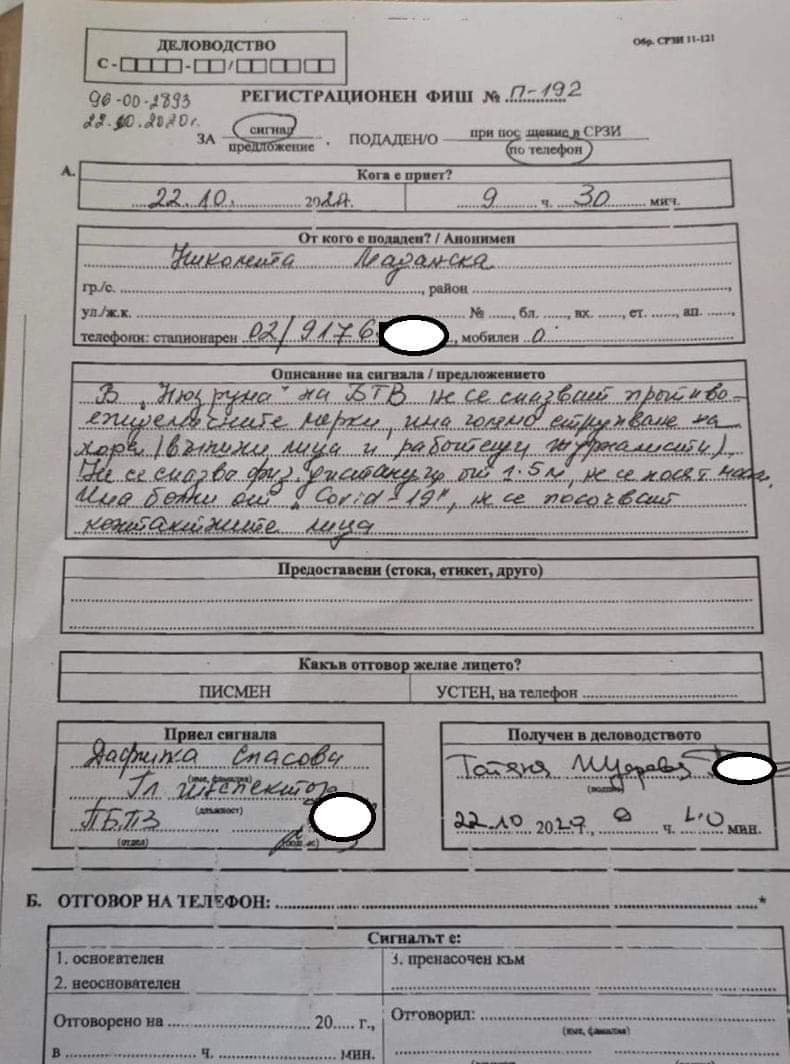 ДЕЛОВОДСТВО
Обр. СРЗИ 11-121
С - - /
96-00-2893
22.10.2020г.
РЕГИСТРАЦИОНЕН ФИШ № П-192
ЗА сигнал предложение , ПОДАДЕН/О при пос щение в СРЗИ по телефон
А.
Кога е приет?
22.10. 202 9 ч. 30 мин.
От кого е подаден? / Анонимен
Николета Маданска
гр./с. , район
ул./ж.к. № , бл. , вх. , ет. , ап. ,
телефони: стационарен 02/ 9176 , мобилен 0
Описание на сигнала / предложението
В "Нюзрума" на БТВ не се спазват противо-
епидемичните мерки, има голямо струпване на
хора (външни лица и работещи журналисти).
Не се спазва физ. дистанция от 1.5м, не се носят маски,
Има болни от "Covid-19", не се посочват
контактните лица
Предоставени (стока, етикет, друго)
Какъв отговор желае лицето?
ПИСМЕН УСТЕН, на телефон
Приел сигнала
Дафинка Спасова
(име, фамилия)
Гл. инспектор
(длъжност)
ПБПЗ
(отдел)
Получен в деловодството
Татяна
22.10 20 , ч. мин.
Б. ОТГОВОР НА ТЕЛЕФОН: *
Сигналът е:
1. основателен
2. неоснователен
3. пренасочен към
Отговорено на 20 г.,
Отговорил:
(име, фамилия)
в ч. мин.